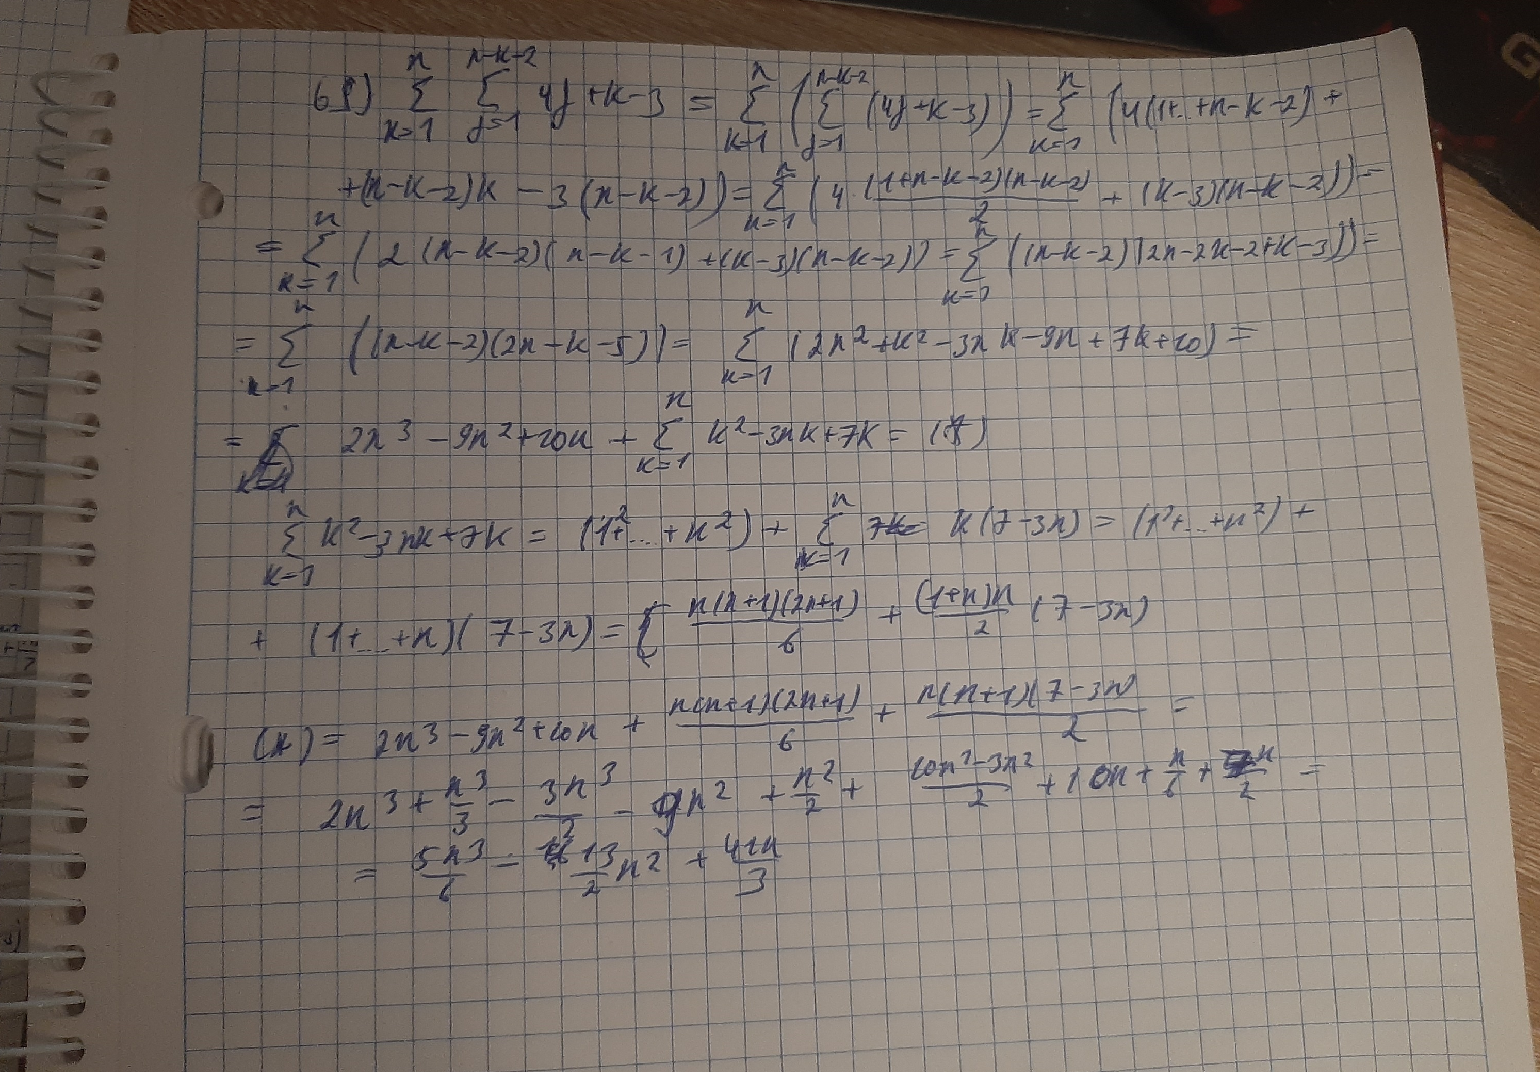 65) \sum_{k=1}^{n} \sum_{j=1}^{n-k-2} 4j+k-3 = \sum_{k=1}^{n} (\sum_{j=1}^{n-k-2} (4j+k-3)) = \sum_{k=1}^{n} (4(1+..+n-k-2) +
+(n-k-2)k - 3(n-k-2)) = \sum_{k=1}^{n} (4 \cdot \frac{(1+n-k-2)(n-k-2)}{2} + (k-3)(n-k-2)) =
= \sum_{k=1}^{n} (2(n-k-2)(n-k-1) + (k-3)(n-k-2)) = \sum_{k=1}^{n} ((n-k-2)(2n-2k-2+k-3)) =
= \sum_{k=1}^{n} ((n-k-2)(2n-k-5)) = \sum_{k=1}^{n} (2n^2+k^2-3nk-9n+7k+10) =
= 2n^3 - 9n^2+10n + \sum_{k=1}^{n} k^2-3nk+7k = (*)
\sum_{k=1}^{n} k^2-3nk+7k = (1^2+...+n^2) + \sum_{k=1}^{n} k(7-3n) = (1^2+...+n^2) +
+ (1+...+n)(7-3n) = \frac{n(n+1)(2n+1)}{6} + \frac{(1+n)n}{2} (7-3n)
(*) = 2n^3-9n^2+10n + \frac{n(n+1)(2n+1)}{6} + \frac{n(n+1)(7-3n)}{2} =
= 2n^3 + \frac{n^3}{3} - \frac{3n^3}{2} - 9n^2 + \frac{n^2}{2} + \frac{-3n^2}{2} + 10n + \frac{n}{6} + \frac{n}{2} =
= \frac{5n^3}{6} - \frac{13}{2}n^2 + \frac{41n}{3}
G